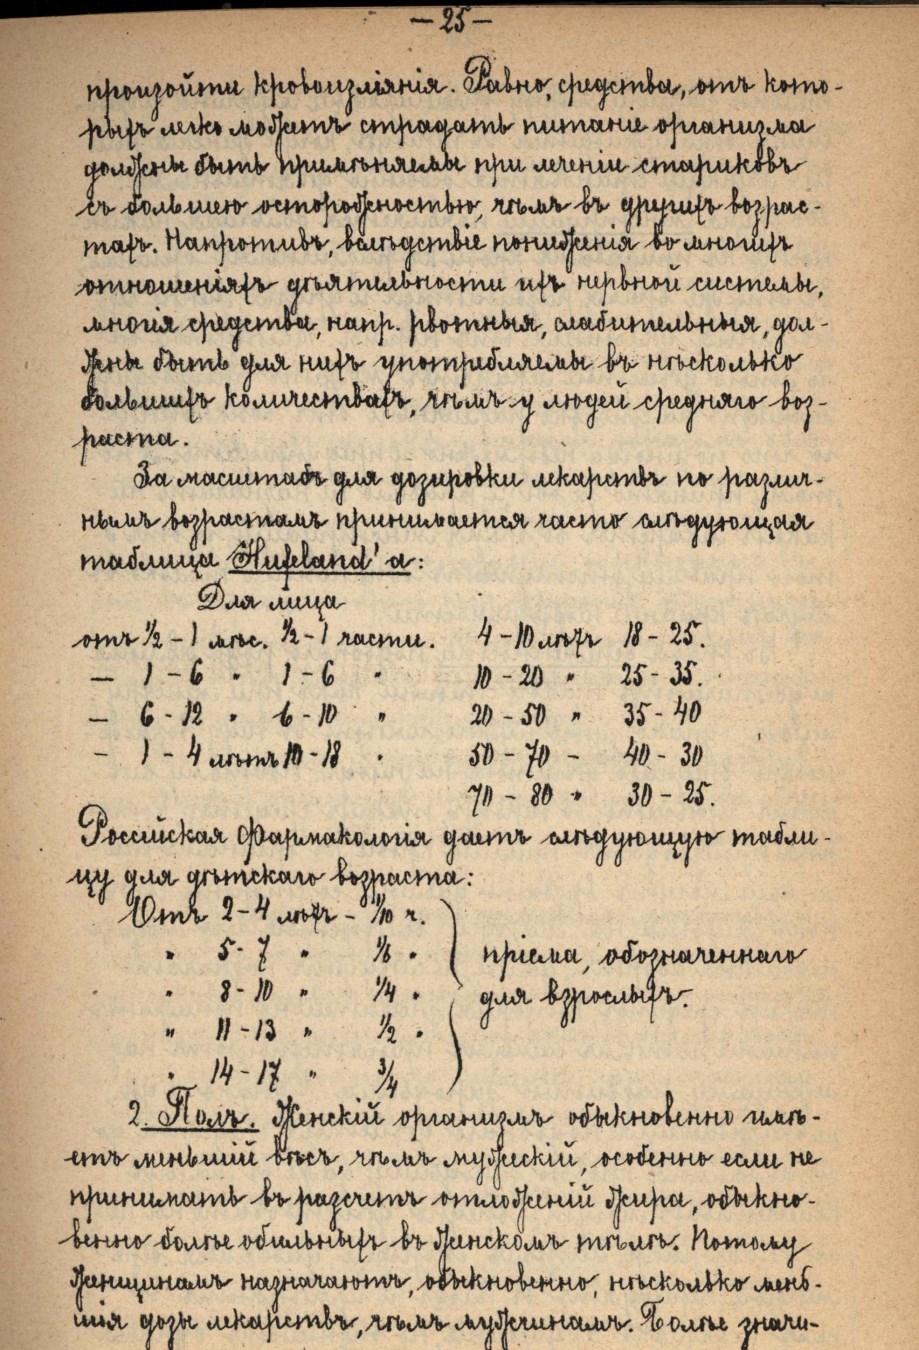 — 25 —
произойти кровоизліянія. Равно, средства, отъ кото-
рыхъ легко можетъ страдать питаніе организма
должны быть примѣняемы при леченіи стариковъ
съ большею осторожностью, чѣмъ въ другихъ возрас-
тахъ. Напротивъ, вслѣдствіе пониженія во многихъ
отношеніяхъ дѣятельности ихъ нервной системы,
многія средства, напр. рвотныя, слабительныя, дол-
жны быть для нихъ употребляемы въ нѣсколько
большихъ количествахъ, чѣмъ у людей средняго воз-
раста.
За масштабъ для дозировки лекарствъ по различ-
нымъ возрастамъ принимается часто слѣдующая
таблица Hufeland'а:
Для лица
отъ ½ – 1 мѣс. ½ – 1 части. 4 – 10 лѣтъ 18 – 25.
— 1 – 6 " 1 – 6 " 10 – 20 " 25 – 35.
— 6 – 12 " 6 – 10 " 20 – 50 " 35 – 40
— 1 – 4 лѣтъ 10 – 18 " 50 – 70 – 40 – 30
70 – 80 " 30 – 25.
Россійская Фармакологія даетъ слѣдующую табли-
цу для дѣтскаго возраста:
Отъ 2 – 4 лѣтъ – 1/10 ч.
" 5 – 7 " 1/6 "
пріема, обозначеннаго
" 8 – 10 " 1/4 "
для взрослыхъ.
" 11 – 13 " 1/2 "
" 14 – 17 " 3/4
2. Полъ. Женскій организмъ обыкновенно имѣ-
етъ меньшій вѣсъ, чѣмъ мужескій, особенно если не
принимать въ разсчетъ отложеній жира, обыкно-
венно болѣе обильныхъ въ женскомъ тѣлѣ. Потому
женщинамъ назначаютъ, обыкновенно, нѣсколько мень-
шія дозы лекарствъ, чѣмъ мужчинамъ. Болѣе значи-